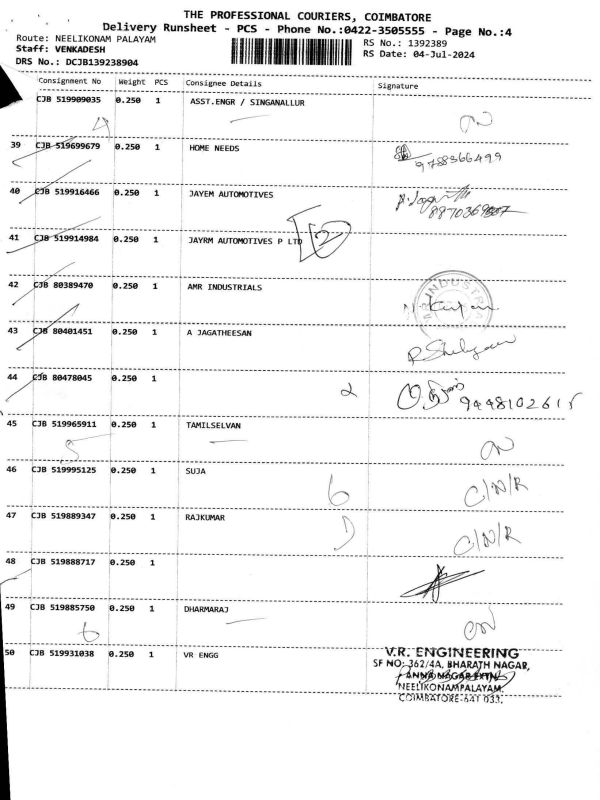 THE PROFESSIONAL COURIERS, COIMBATORE
Delivery Runsheet - PCS - Phone No.:0422-3505555 - Page No.:4
Route: NEELIKONAM PALAYAM
RS No.: 1392389
Staff: VENKADESH
RS Date: 04-Jul-2024
DRS No.: DCJB139238904
Consignment No Weight PCS Consignee Details Signature
CJB 519909035 0.250 1 ASST.ENGR / SINGANALLUR
39 CJB 519699679 0.250 1 HOME NEEDS
9788366499
40 CJB 519916466 0.250 1 JAYEM AUTOMOTIVES
41 CJB 519914984 0.250 1 JAYRM AUTOMOTIVES P LTD
42 CJB 80389470 0.250 1 AMR INDUSTRIALS
43 CJB 80401451 0.250 1 A JAGATHEESAN
44 CJB 80478045 0.250 1
45 CJB 519965911 0.250 1 TAMILSELVAN
5
46 CJB 519995125 0.250 1 SUJA
6 C/N/R
47 CJB 519889347 0.250 1 RAJKUMAR
C/N/R
48 CJB 519888717 0.250 1
49 CJB 519885750 0.250 1 DHARMARAJ
6
50 CJB 519931038 0.250 1 VR ENGG
V.R. ENGINEERING
SF NO: 362/4A, BHARATH NAGAR,
ANNA NAGAR EXTN,
NEELIKONAMPALAYAM,
COIMBATORE-641 033.